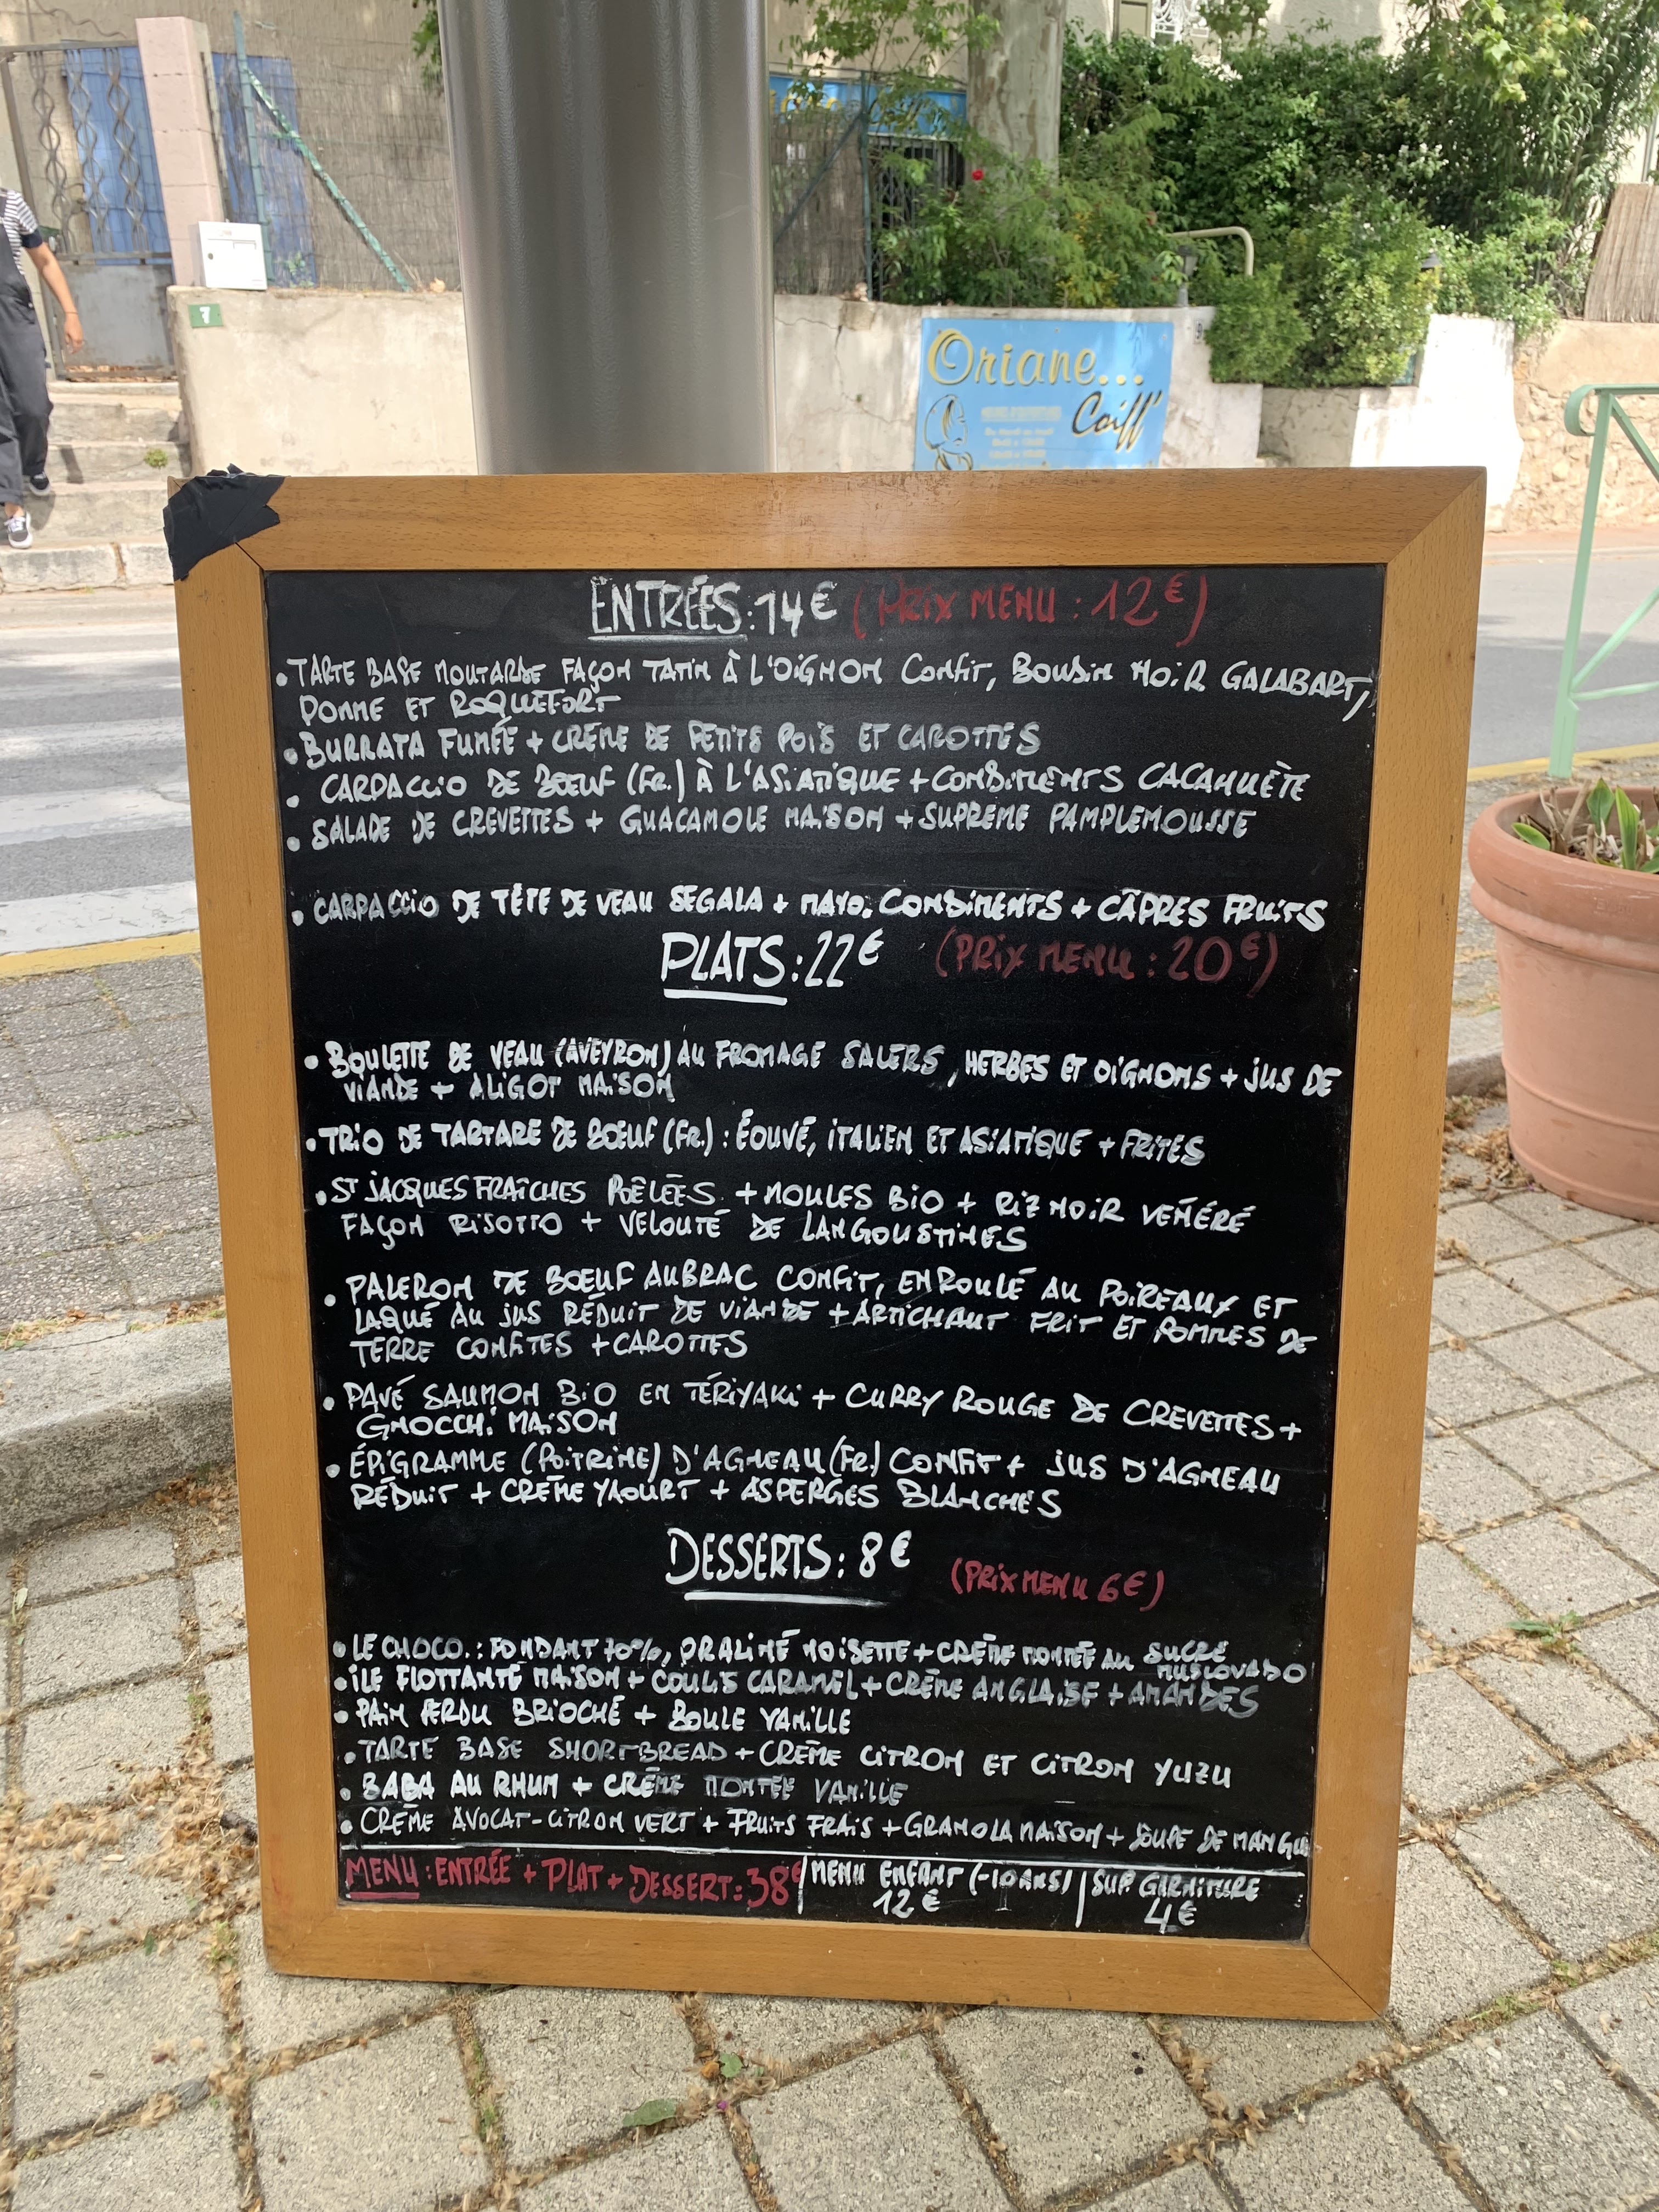 7
Oriane...
Coiff'
ENTRÉES : 14€ (PRIX MENU : 12€)
• TARTE BASE MOUTARDE FAÇON TATIN À L'OIGNON CONFIT, BOUDIN NOIR GALABART,
POMME ET ROQUEFORT
• BURRATA FUMÉE + CRÈME DE PETITS POIS ET CAROTTES
• CARPACCIO DE BŒUF (FR.) À L'ASIATIQUE + CONDIMENTS CACAHUÈTE
• SALADE DE CREVETTES + GUACAMOLE MAISON + SUPRÊME PAMPLEMOUSSE
• CARPACCIO DE TÊTE DE VEAU SEGALA + MAYO. CONDIMENTS + CÂPRES FRUITS
PLATS : 22€ (PRIX MENU : 20€)
• BOULETTE DE VEAU (AVEYRON) AU FROMAGE SALERS, HERBES ET OIGNONS + JUS DE
VIANDE + ALIGOT MAISON
• TRIO DE TARTARE DE BŒUF (FR.) : ÉOUVÉ, ITALIEN ET ASIATIQUE + FRITES
• ST JACQUES FRAÎCHES POÊLÉES + MOULES BIO + RIZ NOIR VÉNÉRÉ
FAÇON RISOTTO + VELOUTÉ DE LANGOUSTINES
• PALERON DE BŒUF AUBRAC CONFIT, ENROULÉ AU POIREAUX ET
LAQUÉ AU JUS RÉDUIT DE VIANDE + ARTICHAUT FRIT ET POMMES DE
TERRE CONFITES + CAROTTES
• PAVÉ SAUMON BIO EN TÉRIYAKI + CURRY ROUGE DE CREVETTES +
GNOCCHI MAISON
• ÉPIGRAMME (POITRINE) D'AGNEAU (FR.) CONFIT + JUS D'AGNEAU
RÉDUIT + CRÈME YAOURT + ASPERGES BLANCHES
DESSERTS : 8€ (PRIX MENU 6€)
• LE CHOCO. : FONDANT 70%, PRALINÉ NOISETTE + CRÈME MONTÉE AU SUCRE
MUSLOVADO
• ÎLE FLOTTANTE MAISON + COULIS CARAMEL + CRÈME ANGLAISE + AMANDES
• PAIN PERDU BRIOCHÉ + BOULE VANILLE
• TARTE BASE SHORTBREAD + CRÈME CITRON ET CITRON YUZU
• BABA AU RHUM + CRÈME MONTÉE VANILLE
• CRÈME AVOCAT-CITRON VERT + FRUITS FRAIS + GRANOLA MAISON + SOUPE DE MANGUE
MENU : ENTRÉE + PLAT + DESSERT : 38€ | MENU ENFANT (-10 ANS) | SUP. GARNITURE
12€ 4€